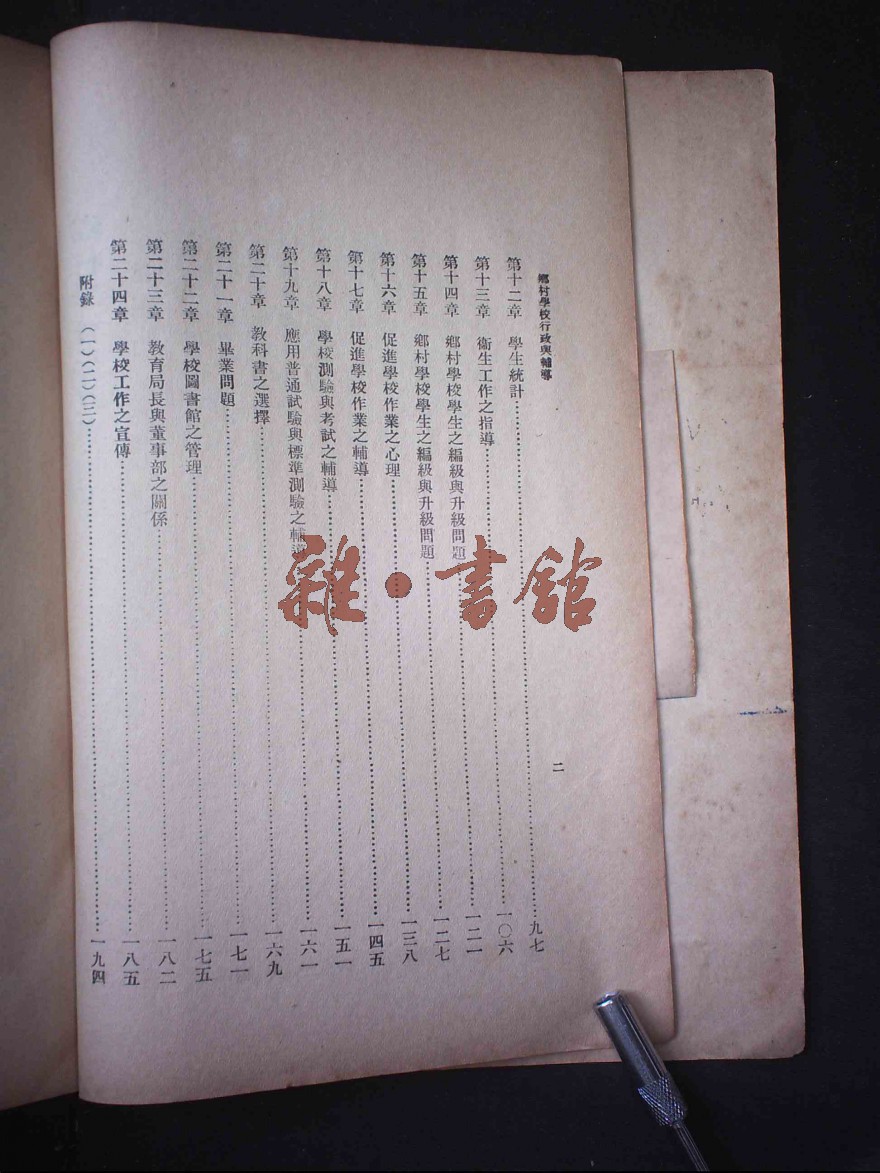 鄉村學校行政與輔導
二
第十二章 學生統計……九七
第十三章 衛生工作之指導……一〇六
第十四章 鄉村學校學生之編級與升級問題……一二一
第十五章 鄉村學校學生之編級與升級問題……一二七
第十六章 促進學校作業之心理……一三八
第十七章 促進學校作業之輔導……一四五
第十八章 學校測驗與考試之輔導……一五一
第十九章 應用普通試驗與標準測驗之輔導……一六一
第二十章 教科書之選擇……一六九
第二十一章 畢業問題……一七一
第二十二章 學校圖書館之管理……一七五
第二十三章 教育局長與董事部之關係……一八二
第二十四章 學校工作之宣傳……一八五
附錄 (一)(二)(三)……一九四
雜·書館